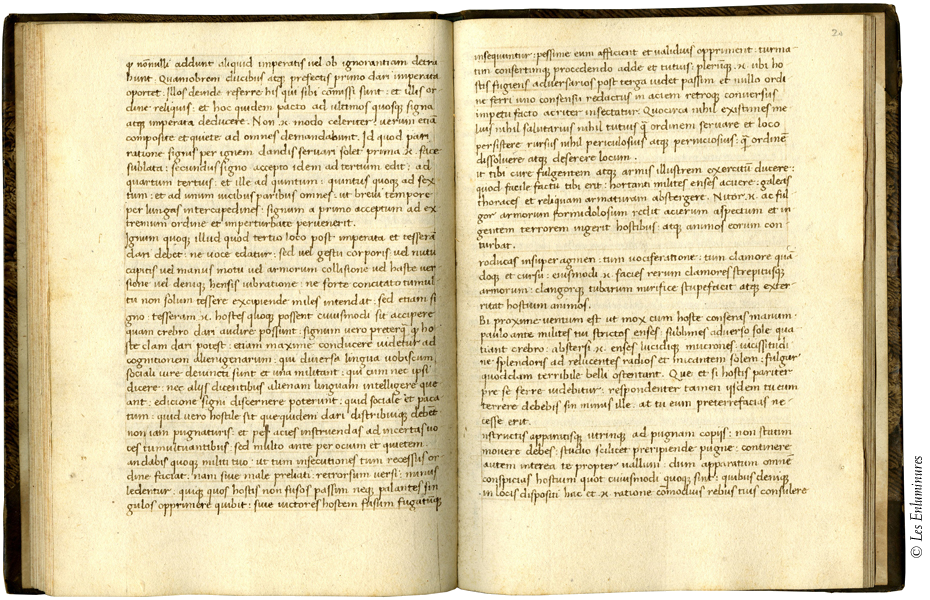 nonnulli addunt aliquid imperatis vel ob ignorantiam detra
hunt. Quamobrem ducibus atq; prefectis primo dari imperata
oportet: Illos deinde referre his qui sibi comissi sunt: et illos or
dine reliquis: et hoc quidem pacto ad ultimos quosq; signa
atq; imperata deducere. Non modo celeriter: verum etiā
composite et quiete ad omnes demandabunt. Id quod pari
ratione signis per ignem dandis servari solet prima face
sublata: secundus signo accepto idem ad tertium edit: ad
quartum tertius: et ille ad quintum: quintus quoq; ad sex
tum: et ad unum vicibus paribus omnes: ut brevi tempore
per longas intercapedines: signum a primo acceptum ad ex
tremum ordine et imperturbate pervenerit.
Ignum quoq; illud quod tertio loco post imperata et tesserā
dari debet: ne voce edatur: sed vel gestu corporis vel nutu
capitis vel manus motu vel armorum collisione vel haste ver
sione vel deniq; hensis vibratione: ne forte concitato tumul
tu non solum tessere excipiende miles intendat: sed etiam si
gno: tesseram hostes quoq; possent cuiusmodi sit accipere
quam crebro dari audire possint: signum vero preterq; ho
ste clam dari potest: etiam maxime conducere videtur ad
cognitionem alienigenarum: qui diversa lingua vobiscum
sociali iure devincti sunt et una militant: qui cum nec ipsi
dicere: nec aliis dicentibus alienam linguam intelligere que
ant: edicione signi discernere poterunt: quid sociale et paca
tum: quid vero hostile sit que quidem dari distribuiq; debēt
non iam pugnaturis: et acies instruendas ad incertas vo
ces tumultuantibus: sed multo ante per ocium et quietem.
andabis quoq; militi tuo: ut tum insecutiones tum recessus or
dine faciat: nam sive male preliati retrorsum versi: minus
ledentur: quicq; quos hostis non fusos passim neq; palantes sin
gulos opprimere quibit: sive victores hostem fusum fugatūq;
20
insequuntur: pessime eum afficient et validius oppriment: turma
tim confertimq; procedendo adde et tutius: plerūq; ubi ho
stis fugiens adversarios post terga videt passim et nullo ordi
ne ferri uno consensu redactus in aciem retroq; conversus
impetu facto acriter insectatur. Quocirca nihil existimes me
lius nihil salutarius nihil tutius q̄ ordinem servare et loco
persistere rursus nihil periculosius atq; perniciosius: q̄ ordinē
dissolvere atq; deserere locum.
it tibi cure fulgentem atq; armis illustrem exercitū ducere:
quod facile factu tibi erit: hortari milites enses acuere: galeas
thoraces et reliquam armaturam abstergere. Nitor ac ful
gor armorum formidolosum reddit acierum aspectum et in
gentem terrorem ingerit hostibus: atq; animos eorum con
turbat.
roducas insuper agmen: tum vociferatione: tum clamore quā
doq; et cursu: eiusmodi facies rerum clamores strepitusq;
armorum: clangorq; tubarum mirifice stupefacit atq; exter
ritat hostium animos.
Bi proxime ventum est ut mox cum hoste conseras manum:
paulo ante milites tui strictos enses: sublimes adverso sole qua
tiant crebro: abstersi enses lucidiq; mucrones: vicissitudi
ne splendoris ad relucentes radios et micantem solem: fulgur
quoddam terribile belli ostentant. Que et si hostis pariter
pre se ferre videbitur: respondenter tamen iisdem tu eum
terrere debebis sin minus ille. at tu eum preterrefacias ne
cesse erit.
nstructis apparatisq; utrinq; ad pugnam copiis: non statim
movere debes: studio scilicet preripiende pugne: continere
autem interea te propter vallum: dum apparatum omnē
conspicias hostium quot cuiusmodi quoq; sint: quibus deniq;
in locis dispositi hac et ratione comodius rebus tuis consulere
© Les Enluminures